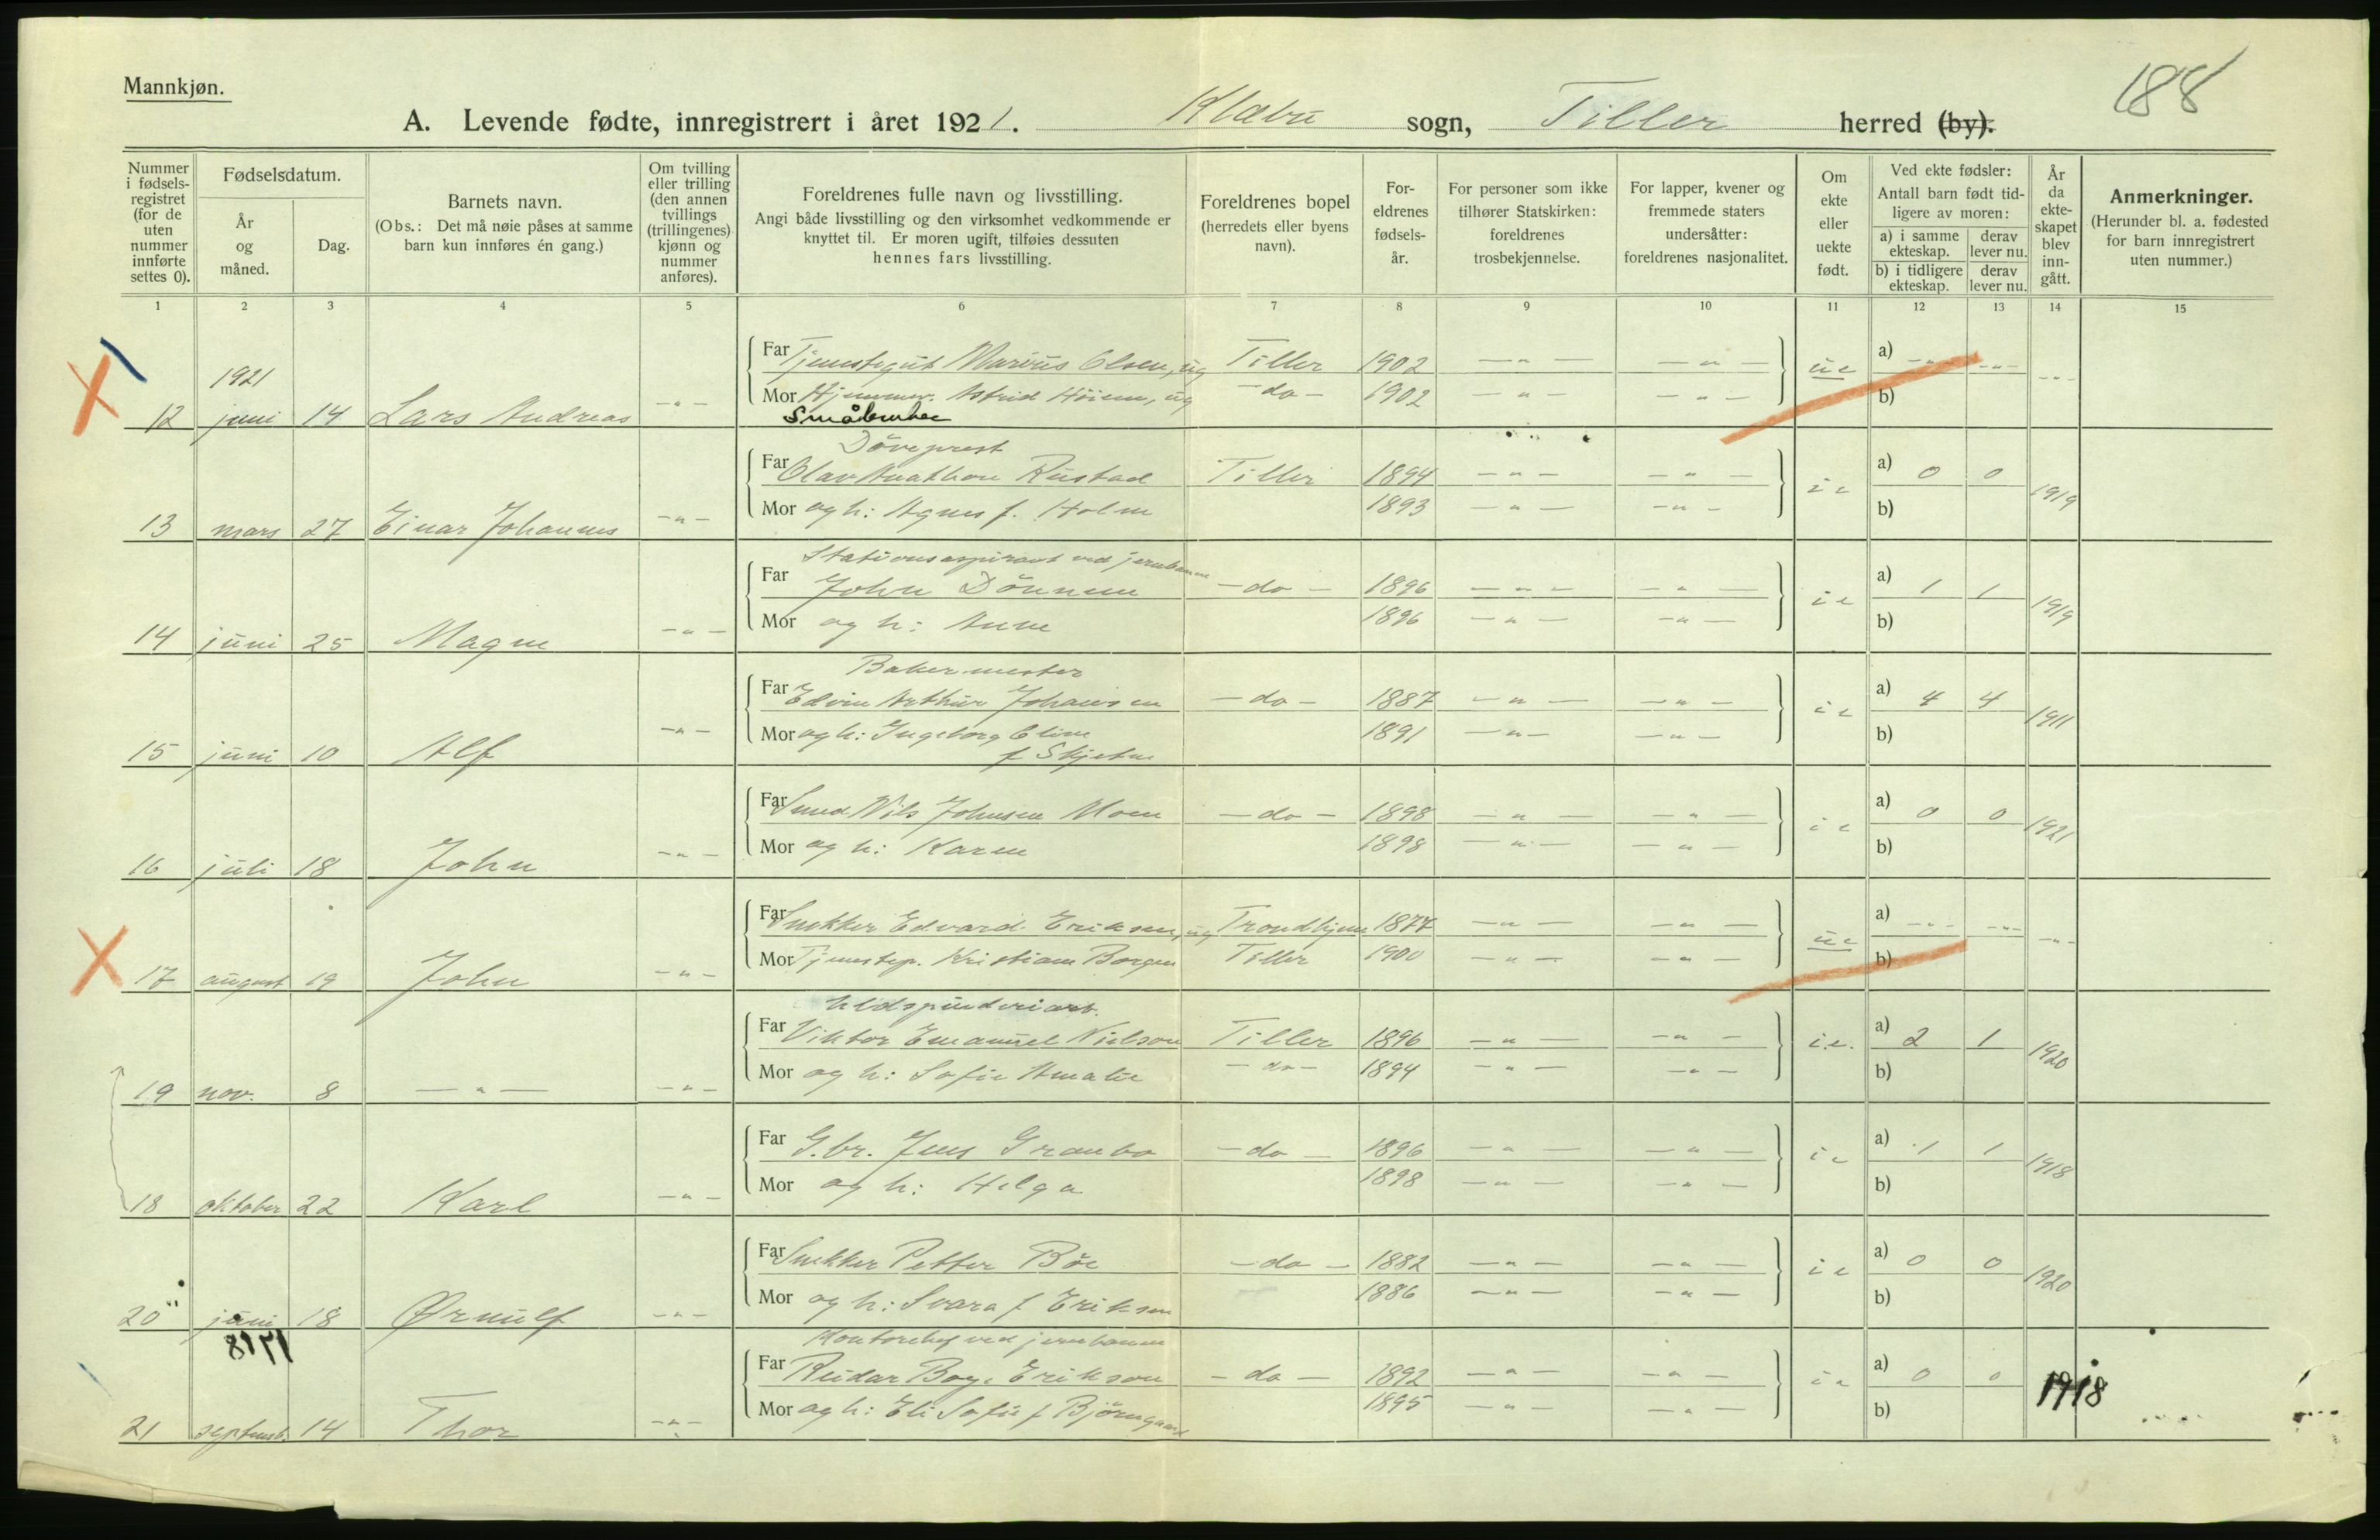 Mannkjøn.
188
A. Levende fødte, innregistrert i året 1921. Klæbu sogn, Tiller herred (by).
Nummer i fødsels-registret (for de uten nummer innførte settes 0).
Fødselsdatum.
År og måned.
Dag.
Barnets navn.
(Obs.: Det må nøie påses at samme barn kun innføres én gang.)
Om tvilling eller trilling (den annen tvillings (trillingenes) kjønn og nummer anføres).
Foreldrenes fulle navn og livsstilling.
Angi både livsstilling og den virksomhet vedkommende er knyttet til. Er moren ugift, tilføies dessuten hennes fars livsstilling.
Foreldrenes bopel (herredets eller byens navn).
For-eldrenes fødsels-år.
For personer som ikke tilhører Statskirken: foreldrenes trosbekjennelse.
For lapper, kvener og fremmede staters undersåtter: foreldrenes nasjonalitet.
Om ekte eller uekte født.
Ved ekte fødsler:
Antall barn født tid-ligere av moren:
a) i samme ekteskap. derav lever nu.
b) i tidligere ekteskap. derav lever nu.
År da ekte-skapet blev inn-gått.
Anmerkninger.
(Herunder bl. a. fødested for barn innregistrert uten nummer.)
1 2 3 4 5 6 7 8 9 10 11 12 13 14 15
1921
Far Tjenestegut Marius Olsen, ug Tiller 1902 — „ — — „ — ue a) - „ - - „ -
Mor Hjemmev. Astrid Höiem, ug — do — 1902 — „ — — „ — b)
12 juni 14 Lars Andreas — „ —
Småbruker
Döveprest
Far Olav Anathon Rustad Tiller 1894 — „ — — „ — ie a) 0 0 1919
Mor og h: Agnes f. Holm 1893 — „ — — „ — b)
13 mars 27 Einar Johannes — „ —
Stationsaspirant ved jernbanen
Far John Dönnem — do — 1896 — „ — — „ — ie a) 1 1 1919
Mor og h: Anne 1896 — „ — — „ — b)
14 juni 25 Magne — „ —
Bakermester
Far Edvin Arthur Johansen — do — 1887 — „ — — „ — ie a) 4 4 1911
Mor og h: Ingeborg Oline 1891 — „ — — „ — b)
f Skjetne
15 juni 10 Alf — „ —
Far Smed Nils Johnsen Moen — do — 1898 — „ — — „ — ie a) 0 0 1921
Mor og h: Karen 1898 — „ — — „ — b)
16 juli 18 John — „ —
Far Snekker Edvard Eriksen, ug Trondhjem 1877 — „ — — „ — ue a) - „ - - „ -
Mor Tjenestep. Kristiane Borgen Tiller 1900 — „ — — „ — b)
17 august 19 John — „ —
Uldspinderiarb.
Far Viktor Emanuel Nielson Tiller 1896 — „ — — „ — i.e. a) 2 1 1920
Mor og h: Sofie Amalie — do — 1894 — „ — — „ — b)
19 nov. 8 — „ — — „ —
Far G.br. Jens Granbo — do — 1896 — „ — — „ — ie a) 1 1 1918
Mor og h: Helga 1898 — „ — — „ — b)
18 oktober 22 Karl — „ —
Far Snekker Petter Böe — do — 1882 — „ — — „ — ie a) 0 0 1920
Mor og h: Svara f Eriksen 1886 — „ — — „ — b)
20 juni 18 Ørnulf — „ —
Kontorchef ved jernbanen
Far Reidar Boye Erikson — do — 1892 — „ — — „ — ie a) 0 0 1918
Mor og h: Eli Sofie f Björngaard 1895 — „ — — „ — b)
21 septemb. 14 Thor — „ —